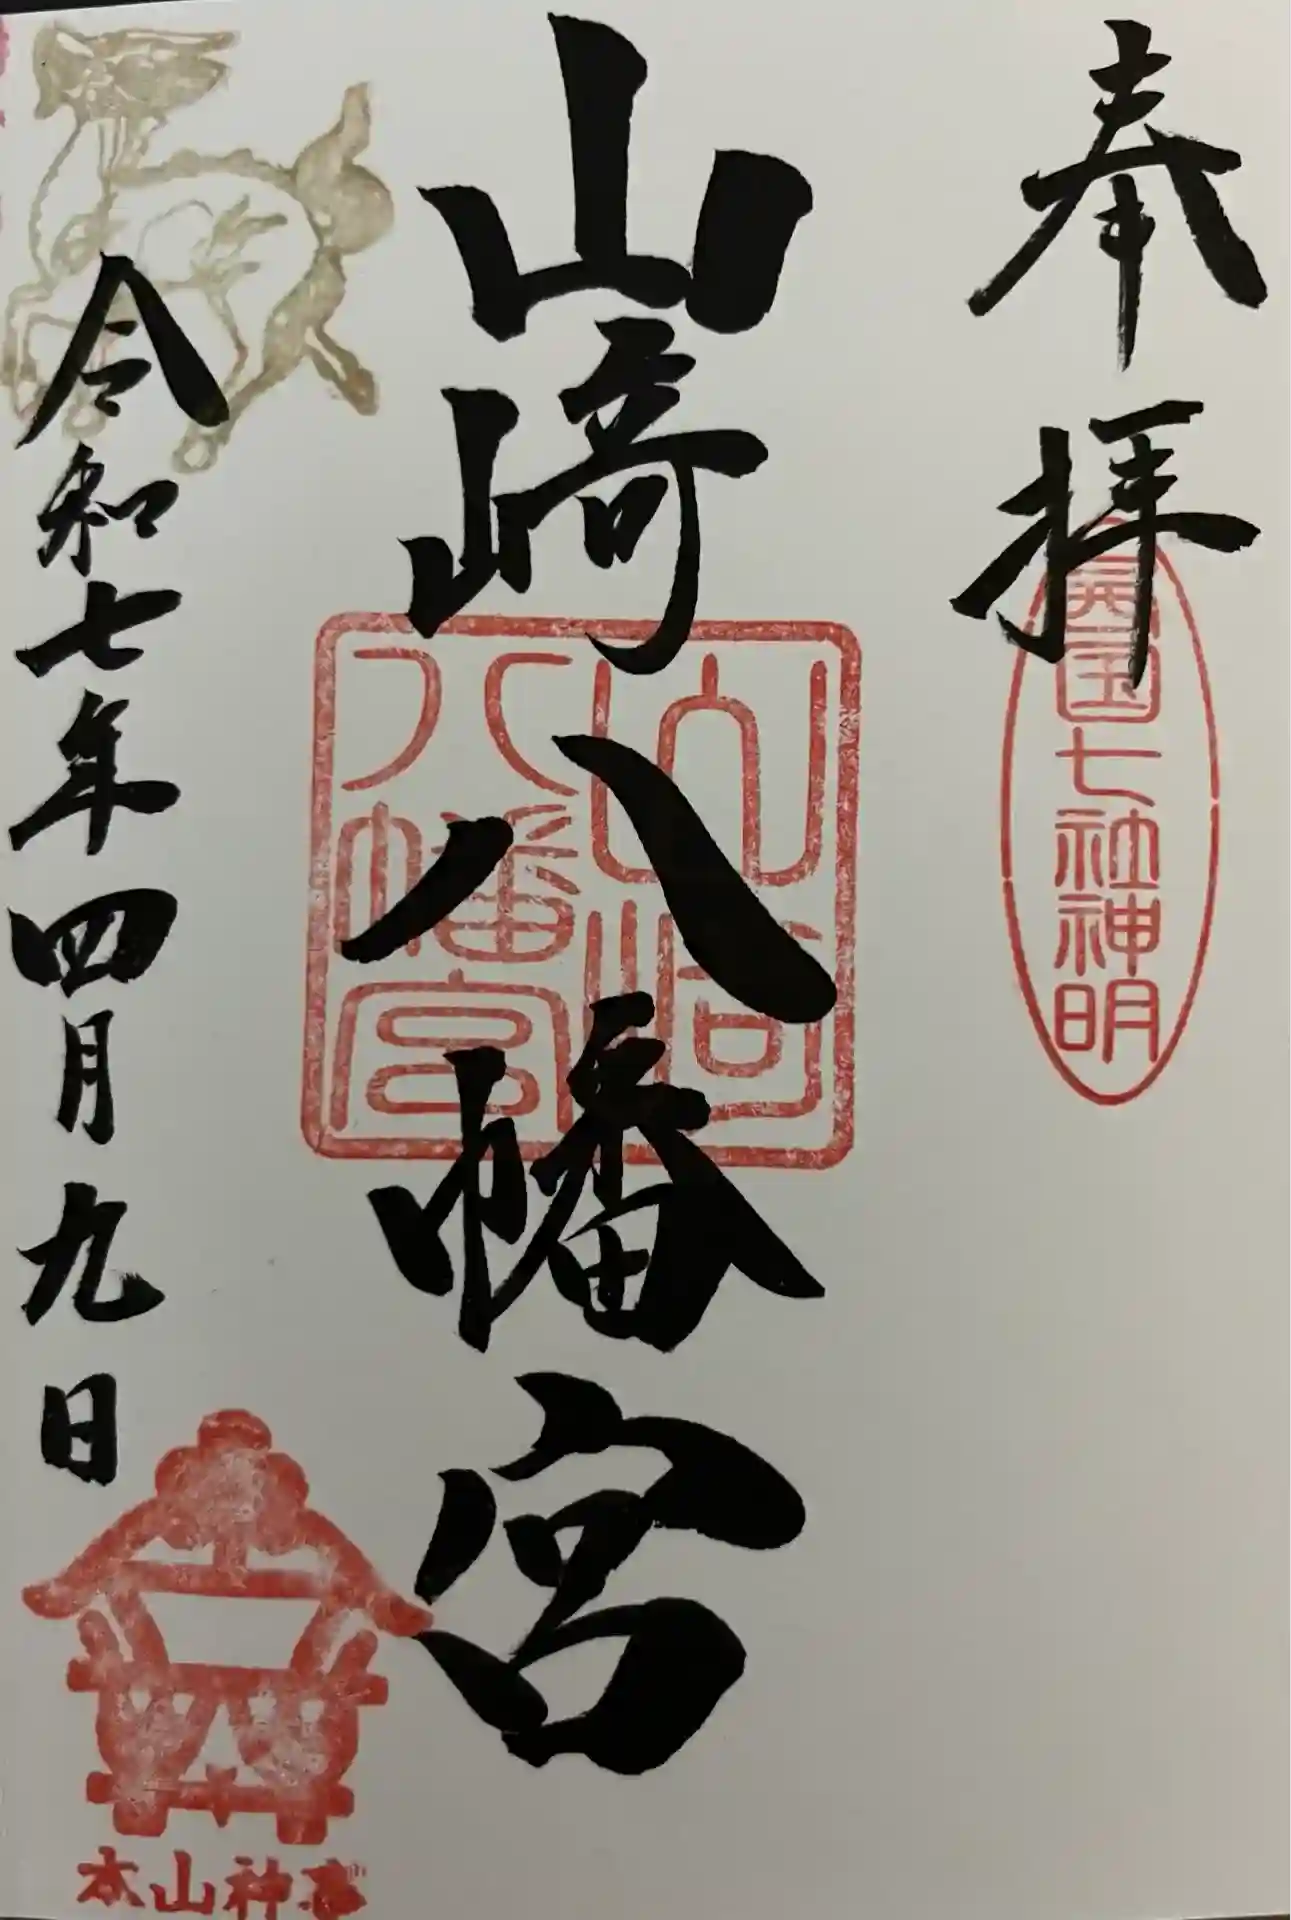 奉拝
国七社神明
山崎八幡宮
山崎
八幡宮
令和七年四月九日
本山神事